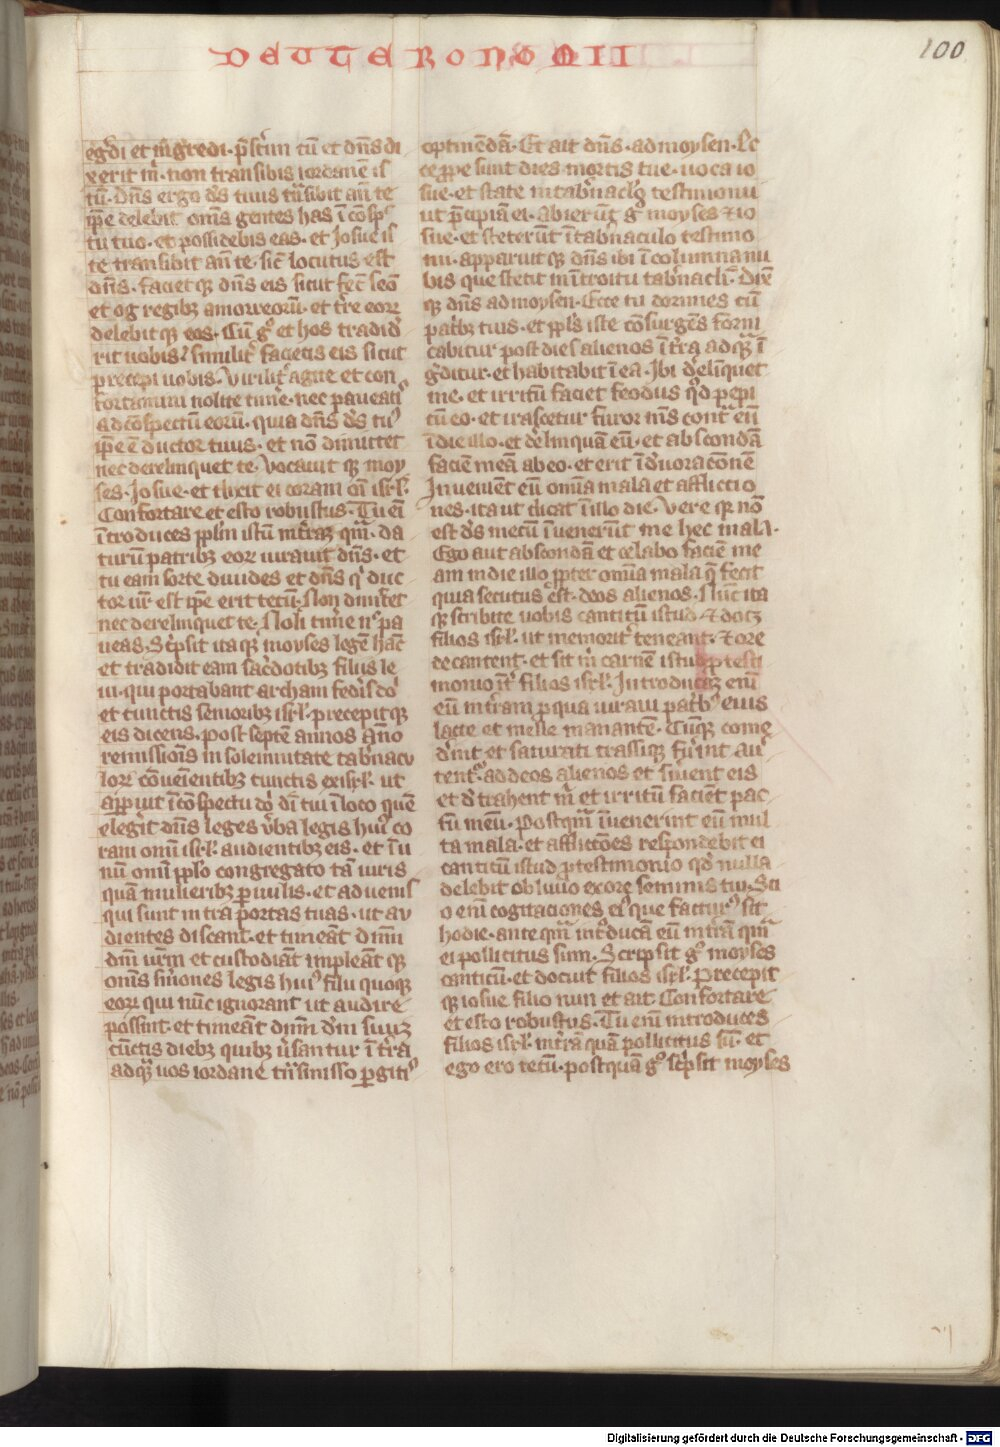 DEUTERONOMII
100
egdi et ingredi. p̄sertim cū et dn̄s di
xerit m̄. non transibis iordanē is
tū. Dn̄s ergo ds̄ tuus trāsibit an̄ te
ip̄e delebit om̄s gentes has ī cōsp̄c
tu tuo. et possidebis eas. et Josue is
te transibit an̄ te. sic̄ locutus est
dn̄s. faciet qꝫ dn̄s eis sicut fec̄ seō
et og regibꝫ amorreorū. et t̄re eoꝝ
delebit qꝫ eos. Cū gͦ et hos tradid̄
rit uobis. similit̄ facietis eis sicut
precepi uobis. Virilit̄ agite et con
fortamini nolite tim̄e. nec paueatis
ad cōspectū eorū. quia dn̄s ds̄ tuꝰ
ip̄e ē ductor tuus. et nō dimittet
nec derelinquet te. Vocauit qꝫ moy
ses. Josue. et dixit ei coram om̄i isrl̄.
Confortare et esto robustus. Tu en̄
ītroduces pp̄lm istū in t̄raꝫ qm̄. da
turū patribꝫ eoꝝ iurauit dn̄s. et
tu eam sorte diuides et dn̄s qͥ duc
tor ur̄ est ip̄e erit tecū. Non dimittet
nec derelinquet te. Noli tim̄e nͨ pa
ueas. Sc̄psit itaqꝫ moyses legē hāc
et tradidit eam sac̄dotibꝫ filiis le
ui. qui portabant archam fed̄is dn̄i
et cunctis senioribꝫ isrl̄. precepit qꝫ
eis dicens. post septē annos āno
remissiōis in solemnitate tab̄nacu
loꝝ cōueniētibꝫ cunctis ex isrl̄. ut
appareāt ī cōspectu dn̄i di tui ī loco quē
elegit dn̄s leges v̄ba legis huiꝰ co
ram omī isrl̄. audientibꝫ eis. et ī u
nū omī pp̄lo congregato tā uiris
quā mulieribꝫ p̄uulis. et aduenis
qui sunt intra portas tuas. ut au
dientes discant. et timeāt dm̄ni
dm̄ ur̄m et custodiāt impleāt qꝫ
om̄s s̄mones legis huiꝰ filii quoqꝫ
eoꝝ qui nūc ignorant ut audire
possint. et timeāt dnm̄ dm̄ suūꝫ
cūctis diebꝫ quibꝫ u̓santur ī t̄ra
ad quā uos iordane trāsmisso pergitiꝰ
optinēdā. Et ait dn̄s. ad moysen. Ec
ce ꝓpe sunt dies mortis tue. uoca io
sue. et state in tab̄naclo̓ testimonii
ut p̄cipiā ei. Abierūt gͦ moyses ⁊ io
sue. et steterūt ī tab̄naculo testimo
nii. apparuit qꝫ dn̄s ibi ī columna nu
bis que stetit in ītroitu tab̄nacli̓. Dixit
qꝫ dn̄s ad moysen. Ecce tu dormies cū
patibꝫ tuis. et pp̄ls iste cōsurgēs forni
cabitur post deos alienos ī t̄ra ad quā ī
g̓ditur. et habitabit ī ea. Ibi derelīquet
me. et irritū faciet fedus qd̄ pepi
tū eo. et irascetur furor ms̄ cont̄ eū
ī die illo. et de̓linquā eū. et abscondā
faciē meā ab eo. et erit ī deuoracōnē
Inuenient eū omīa mala et afflictio
nes. ita ut dicat ī illo die. Vere qꝫ nō
est ds̄ mecū īuenerūt me hec mala.
Ego aut abscondā et celabo faciē me
am in die illo ꝓpter omīa mala q̄ fecit
quia secutus est. deos alienos. Nūc ita
qꝫ scribite uobis cantitū istud ⁊ docꝫ
filios isrl̄. ut memorit̄ teneant. ⁊ ore
decantent. et sit m̄ carnē istud p̱ testi
monio īt̓ filios isrl̄. Introducaꝫ enī
eū in t̄ram ꝓ qua iuraui patibꝫ eius
lacte et melle manantē. Cūqꝫ come
d̓int et saturati crassiqꝫ fu̓int au̓
tentꝰ. ad deos alienos et s̓uient eis
et d̓trahent m̄ et irritū faciēt pac
tū meū. Postqm̄ īuenerint eū mul
ta mala. et afflictōes respondebit ei
canticū istud ꝓ testimonio qd̄ nulla
delebit obliuio ex ore seminis tui. Sci
o enī cogitaciones eiꝰ que facturꝰ sit
hodie. ante qm̄ int̓ducā eū in t̄rā qm̄
ei pollicitus sum. Scripsit gͦ moyses
canticū. et docuit filios isrl̄. Precepit
qꝫ iosue filio nun et ait. Confortare
et esto robustus. Tu enī introduces
filios isrl̄. in t̄rā quā pollicitus sū. et
ego ero tecū. postquā gͦ sc̄psit moyses
Digitalisierung gefördert durch die Deutsche Forschungsgemeinschaft - DFG